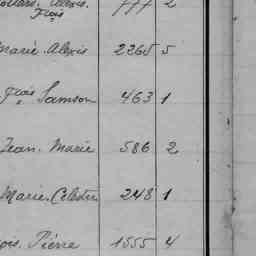 Alexis. 777 2
Frois
Marie Alexis 2265 5
Frois Samson 463 1
Jean. Marie 586 2
Marie. Celestin 248 1
ois. Pierre 1555 4